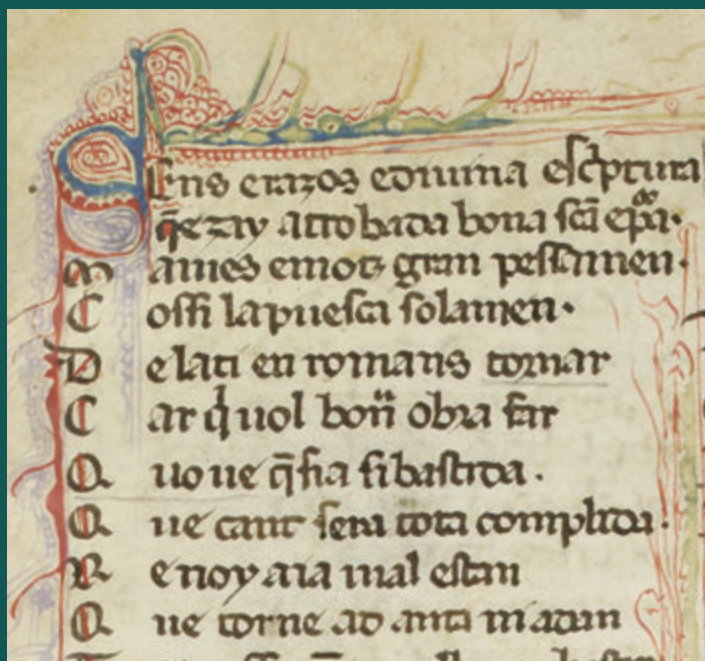 SEns erazos ediuina esc̾ptura
q̄ezay attrobada bona scā epᵃa·
M ames emot gran pessamen·
C ossi lapuesca solamen·
D elati en romans tornar
C ar q̇ uol bon̄ obra far
Q uoue q̄sia sibastida·
Q ue cant sera tota complida·
R e noy aia mal estan
Q ue torne ad anta ni adan